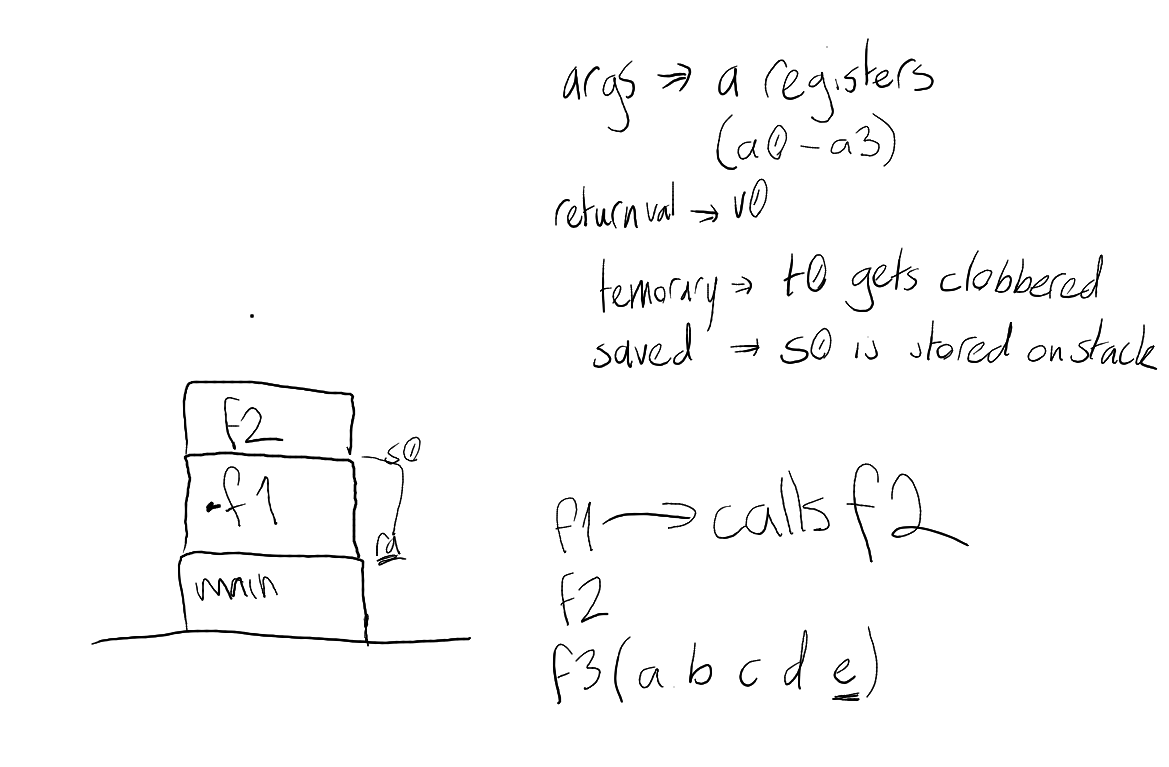 args ⇒ a registers
(a0 - a3)
return val → v0
temorary ⇒ t0 gets clobbered
saved ⇒ s0 is stored on stack
f2
s0
f1
ra
main
f1 → calls f2
f2
f3(a b c d e)